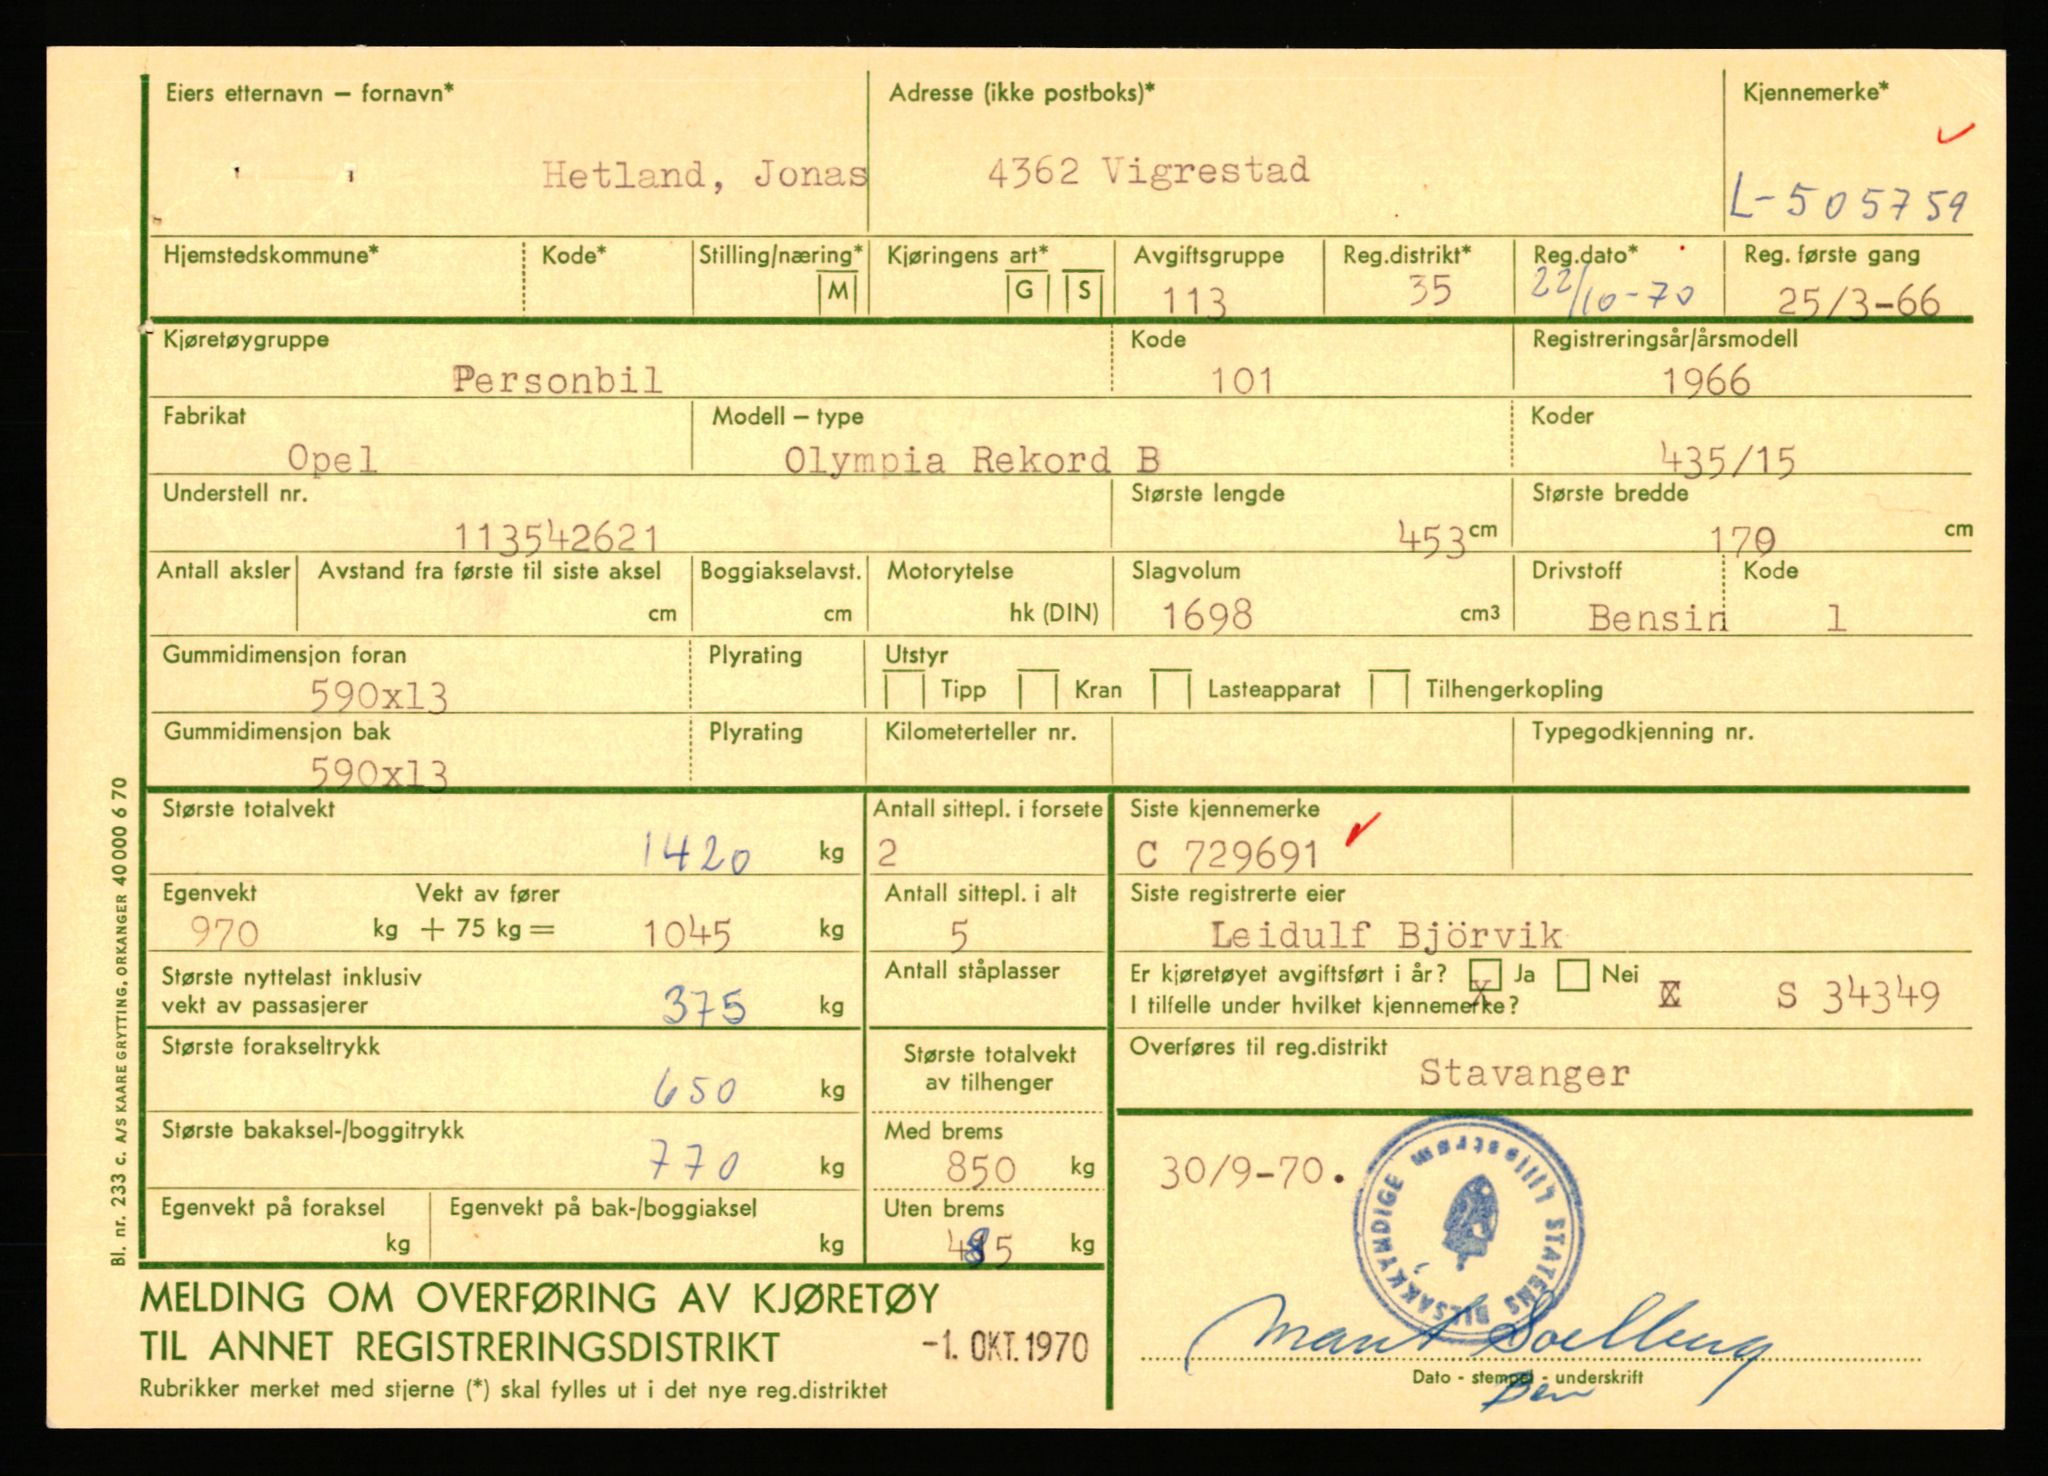 Eiers etternavn – fornavn*
Adresse (ikke postboks)*
Kjennemerke*
Hetland, Jonas
4362 Vigrestad
L-505759
Hjemstedskommune*
Kode*
Stilling/næring*
M
Kjøringens art*
G
S
Avgiftsgruppe
113
Reg.distrikt*
35
Reg.dato*
22/10-70
Reg. første gang
25/3-66
Kjøretøygruppe
Personbil
Kode
101
Registreringsår/årsmodell
1966
Fabrikat
Opel
Modell – type
Olympia Rekord B
Koder
435/15
Understell nr.
113542621
Største lengde
453 cm
Største bredde
170 cm
Antall aksler
Avstand fra første til siste aksel
cm
Boggiakselavst.
cm
Motorytelse
hk (DIN)
Slagvolum
1698 cm3
Drivstoff
Bensin
Kode
1
Gummidimensjon foran
590x13
Plyrating
Utstyr
Tipp
Kran
Lasteapparat
Tilhengerkopling
Gummidimensjon bak
590x13
Plyrating
Kilometerteller nr.
Typegodkjenning nr.
Største totalvekt
1420 kg
Antall sittepl. i forsete
2
Siste kjennemerke
C 729691
Egenvekt
970 kg
Vekt av fører
+ 75 kg = 1045 kg
Antall sittepl. i alt
5
Siste registrerte eier
Leidulf Björvik
Største nyttelast inklusiv
vekt av passasjerer
375 kg
Antall ståplasser
Er kjøretøyet avgiftsført i år? X Ja Nei
I tilfelle under hvilket kjennemerke?
S 34349
Største forakseltrykk
650 kg
Største totalvekt
av tilhenger
Overføres til reg.distrikt
Stavanger
Største bakaksel-/boggitrykk
770 kg
Med brems
850 kg
30/9-70.
STATENS BILSAKKYNDIGE Lillestrøm
Egenvekt på foraksel
kg
Egenvekt på bak-/boggiaksel
kg
Uten brems
485 kg
MELDING OM OVERFØRING AV KJØRETØY
TIL ANNET REGISTRERINGSDISTRIKT
-1. OKT. 1970
Rubrikker merket med stjerne (*) skal fylles ut i det nye reg.distriktet
Dato - stempel - underskrift
Bl. nr. 233 c. A/S KAARE GRYTTING, ORKANGER 40 000 6 70